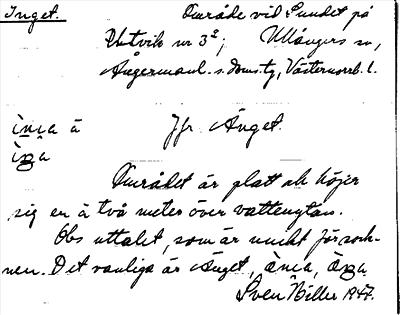 Inget. Område vid Sundet på
Utvik nr 3²; Ullångers sn,
Ångermanl. s. doms.tg, Västernorrl. l.
ìnɛa â Jfr. Ånget.
ìŋa
Området är platt och höjer
sig en à två meter över vattenytan.
Obs uttalet, som är unikt för sock-
nen. Det vanliga är Änget,
Sven Biller 1947.